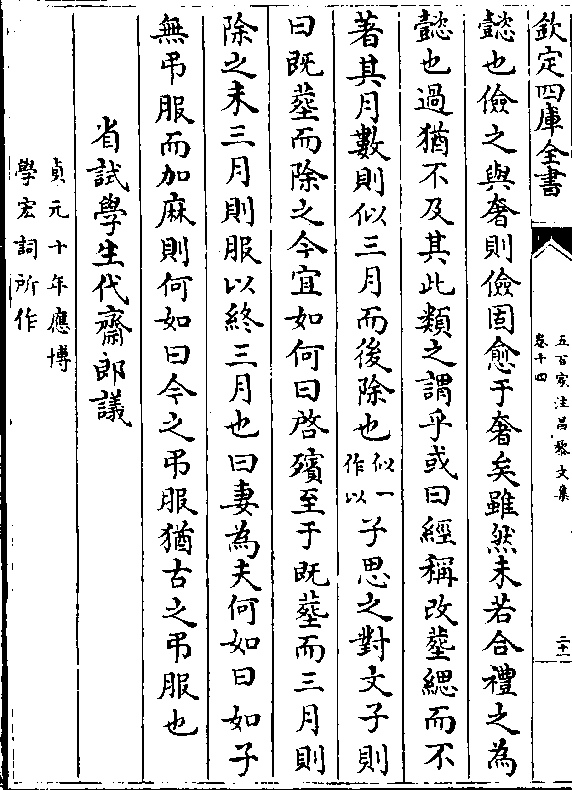 欽定四庫全書
五百家注昌黎文集
卷十四
二十一
懿也儉之與奢則儉固愈于奢矣雖然未若合禮之為
懿也過猶不及其此類之謂乎或曰經稱改塟緦而不
著其月數則似三月而後除也似一作以子思之對文子則
曰既塟而除之今宜如何曰啓殯至于既塟而三月則
除之未三月則服以終三月也曰妻為夫何如曰如子
無弔服而加麻則何如曰今之弔服猶古之弔服也
省試學生代齋郎議
貞元十年應博
學宏詞所作